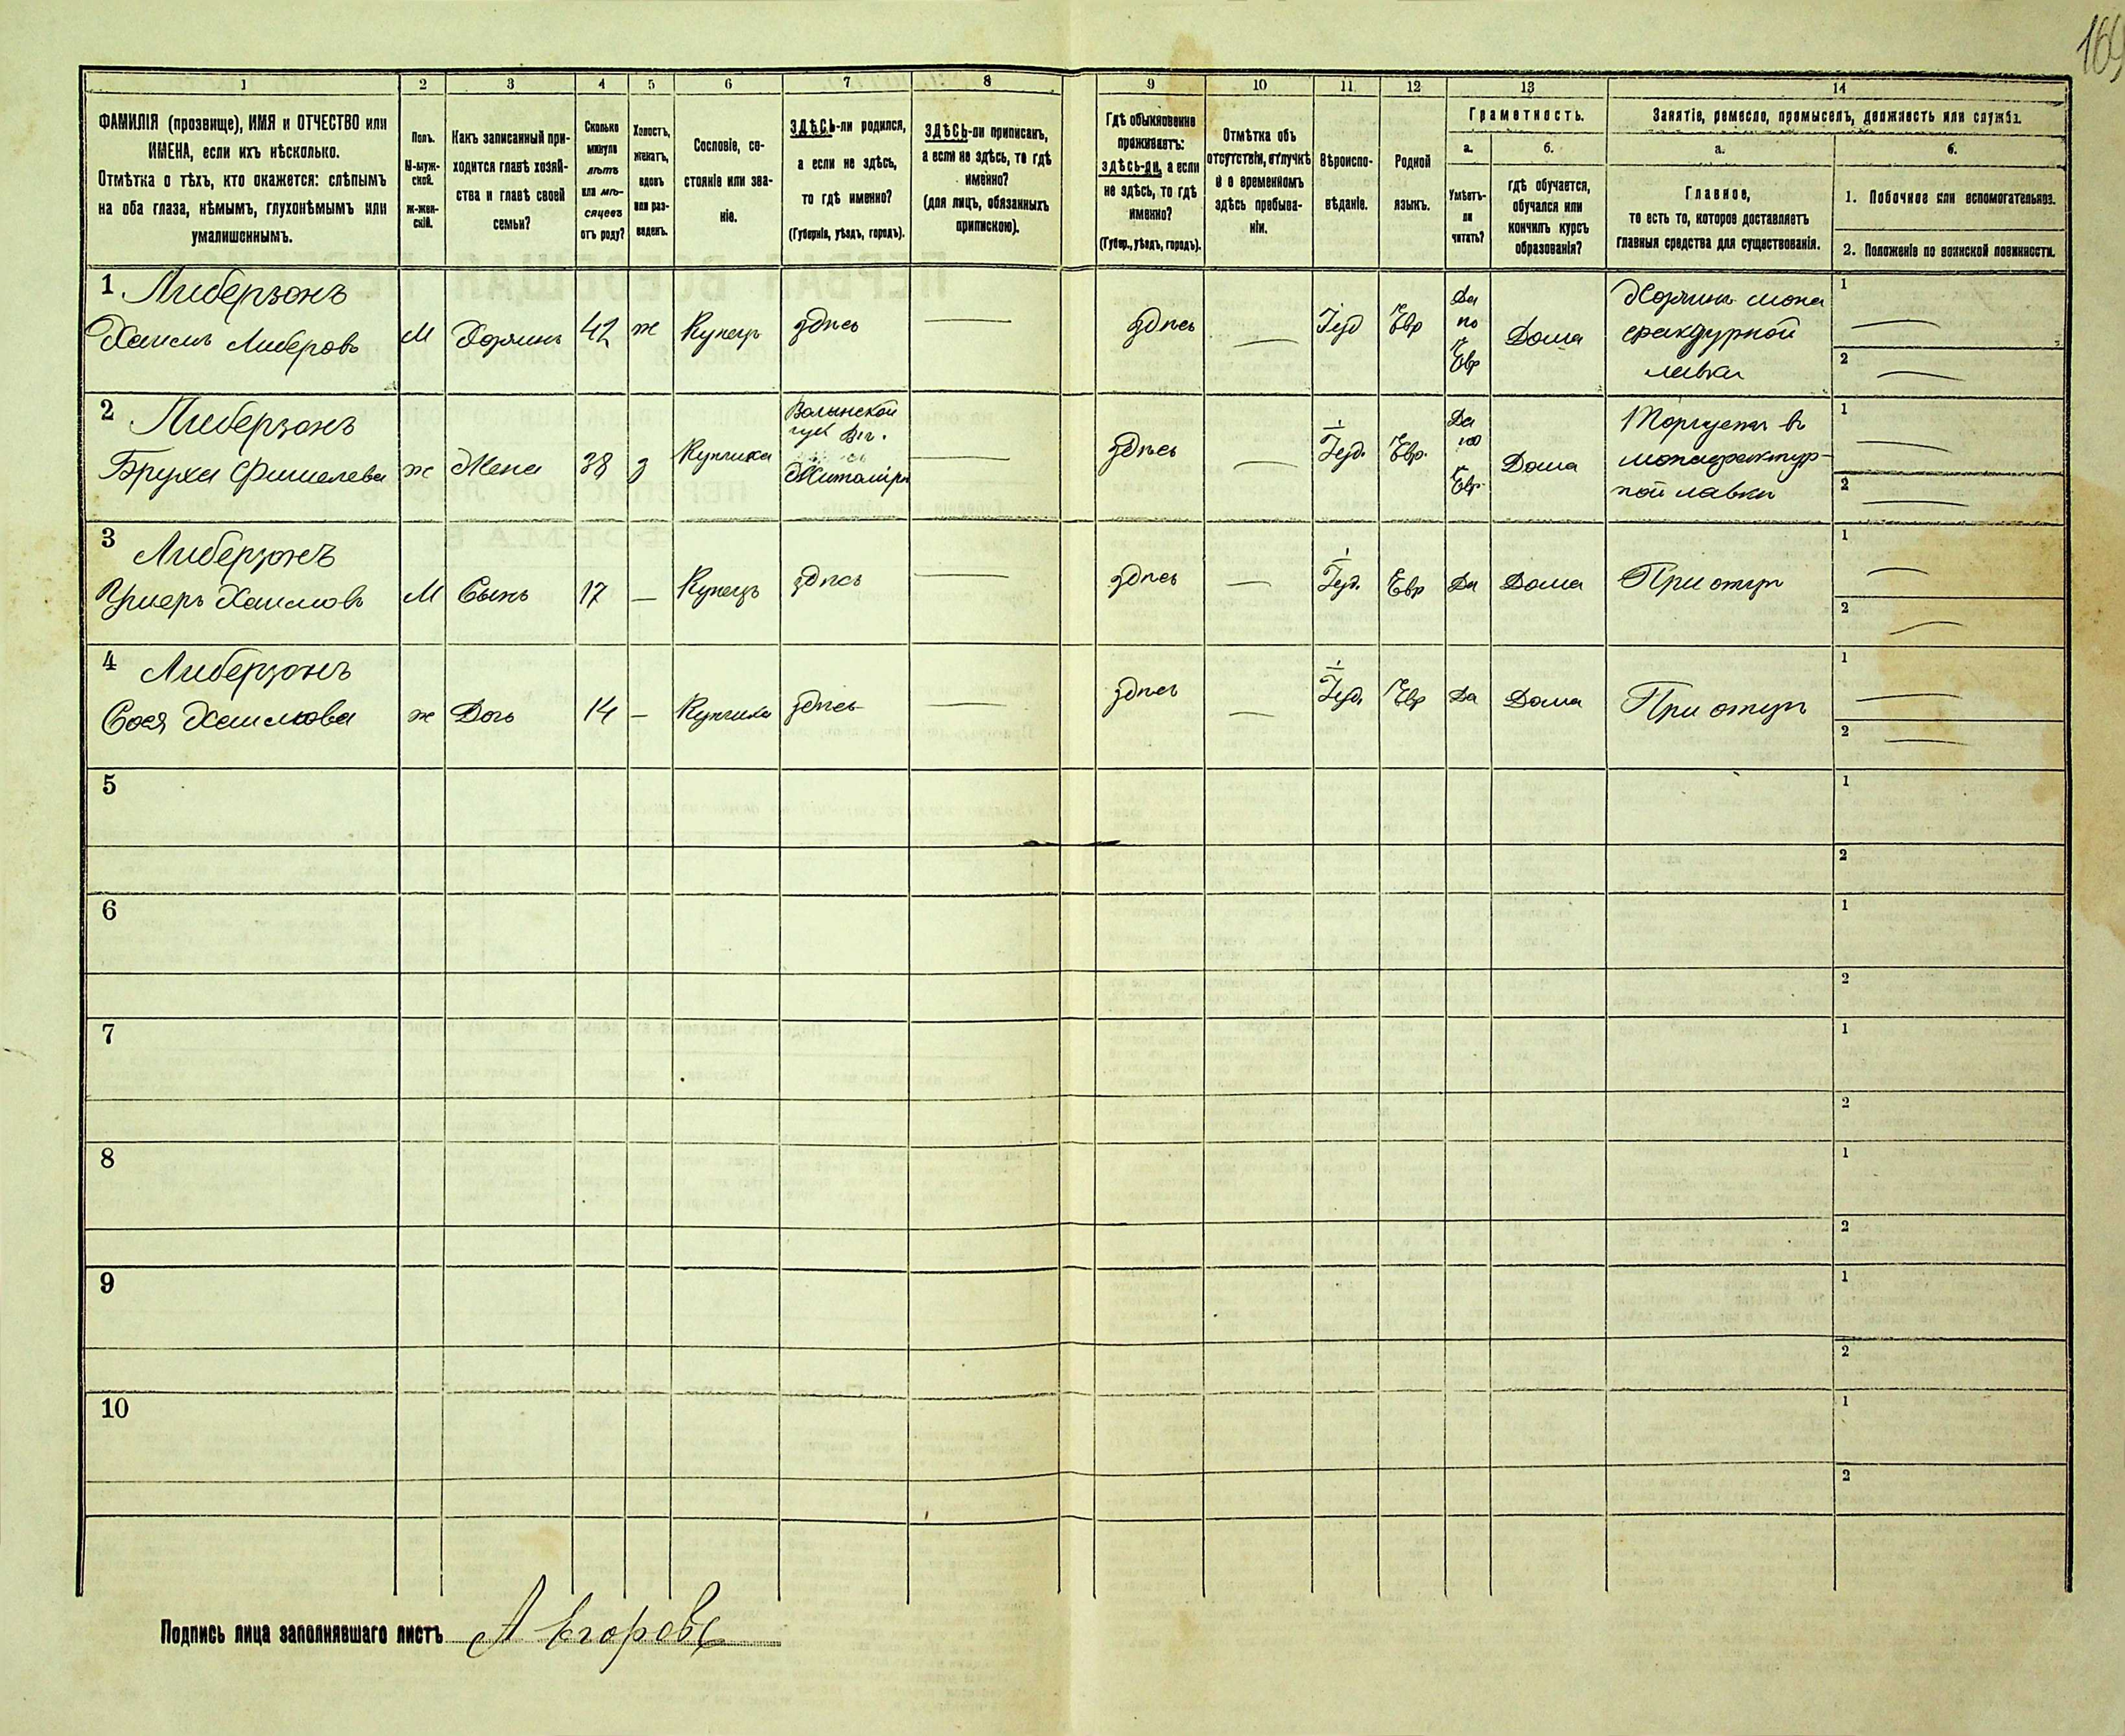 169
1 2 3 4 5 6 7 8 9 10 11 12 13 14
ФАМИЛІЯ (прозвище), ИМЯ и ОТЧЕСТВО или
ИМЕНА, если ихъ нѣсколько.
Отмѣтка о тѣхъ, кто окажется: слѣпымъ
на оба глаза, нѣмымъ, глухонѣмымъ или
умалишеннымъ.
Полъ.
М-муж-
ской.
Ж-жен-
скій.
Какъ записанный при-
ходится главѣ хозяй-
ства и главѣ своей
семьи?
Сколько
минуло
лѣтъ
или мѣ-
сяцевъ
отъ роду?
Холостъ,
женатъ,
вдовъ
или раз-
веденъ.
Сословіе, со-
стояніе или зва-
ніе.
ЗДѢСЬ-ли родился,
а если не здѣсь,
то гдѣ именно?
(Губернія, уѣздъ, городъ).
ЗДѢСЬ-ли приписанъ,
а если не здѣсь, то гдѣ
именно?
(для лицъ, обязанныхъ
припискою).
Гдѣ обыкновенно
проживаетъ:
ЗДѢСЬ-ли, а если
не здѣсь, то гдѣ
именно?
(Губер., уѣздъ, городъ).
Отмѣтка объ
отсутствіи, отлучкѣ
и о временномъ
здѣсь пребыва-
ніи.
Вѣроиспо-
вѣданіе.
Родной
языкъ.
Грамотность.
а.
Умѣетъ-
ли
читать?
б.
гдѣ обучается,
обучался или
кончилъ курсъ
образованія?
Занятіе, ремесло, промыселъ, должность или служба.
а.
Главное,
то есть то, которое доставляетъ
главныя средства для существованія.
б.
1. Побочное или вспомогательное.
2. Положеніе по воинской повинности.
1 Либерзонъ
Хаимъ Либеровъ М Хозяинъ 42 ж Купецъ здѣсь — здѣсь — Іуд Евр Да по Евр Дома Хозяинъ мона
фактурной
лавки
1 —
2 —
2 Либерзонъ
Бруха Фишелева ж Жена 38 з Купчиха Волынской
губ
Житоміръ — здѣсь — Іуд. Евр. Да по Евр. Дома Торгуетъ въ
монафактур-
ной лавки
1 —
2 —
3 Либерзонъ
Ушеръ Хаимовъ М Сынъ 17 — Купецъ здѣсь — здѣсь — Іуд. Евр Да Дома При отцѣ
1 —
2 —
4 Либерзонъ
Сося Хаимова ж Дочь 14 — Купчиха здѣсь — здѣсь — Іуд. Евр Да Дома При отцѣ
1 —
2 —
5 1
2
6 1
2
7 1
2
8 1
2
9 1
2
10 1
2
Подпись лица заполнявшаго листъ